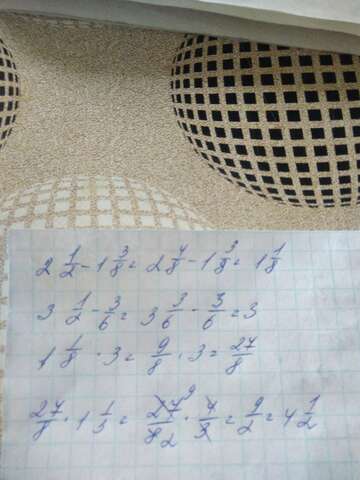 2 1/2 - 1 3/8 = 2 4/8 - 1 3/8 = 1 1/8
3 1/2 - 3/6 = 3 3/6 - 3/6 = 3
1 1/8 · 3 = 9/8 · 3 = 27/8
27/8 · 1 1/3 = 27 9/8 2 · 4/3 = 9/2 = 4 1/2